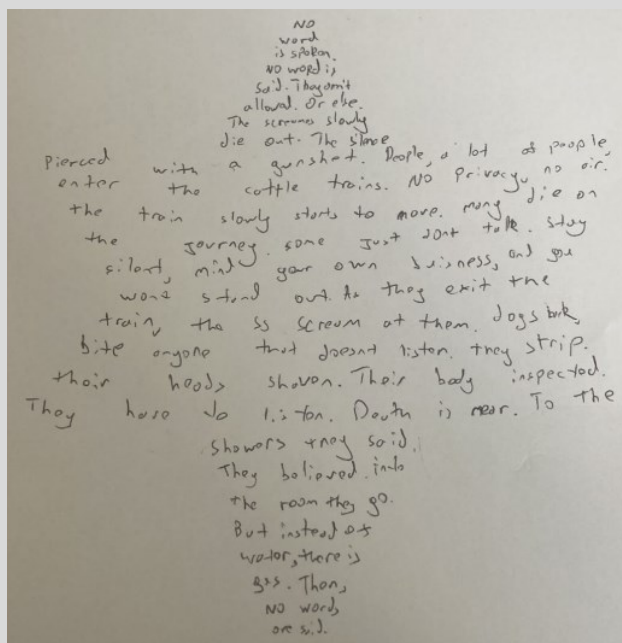 NO
word
is spoken.
NO word is
said. They arn't
allowed. Or else.
The screams slowly
die out. The silance
Pierced with a gunshot. People, a lot of people,
enter the cattle trains. NO privacy, no air.
the train slowly starts to move. many die on
the journey. some just dont talk. stay
silent, mind your own buisness, and you
wont stand out. As they exit the
train, the ss scream at them. dogs bark,
bite anyone that doesnt listen. they strip.
their heads shaven. Their body inspected.
They have to listen. Death is near. To the
showers they said.
They believed. into
the room they go.
But instead of
water, there is
gas. Then,
NO words
are said.